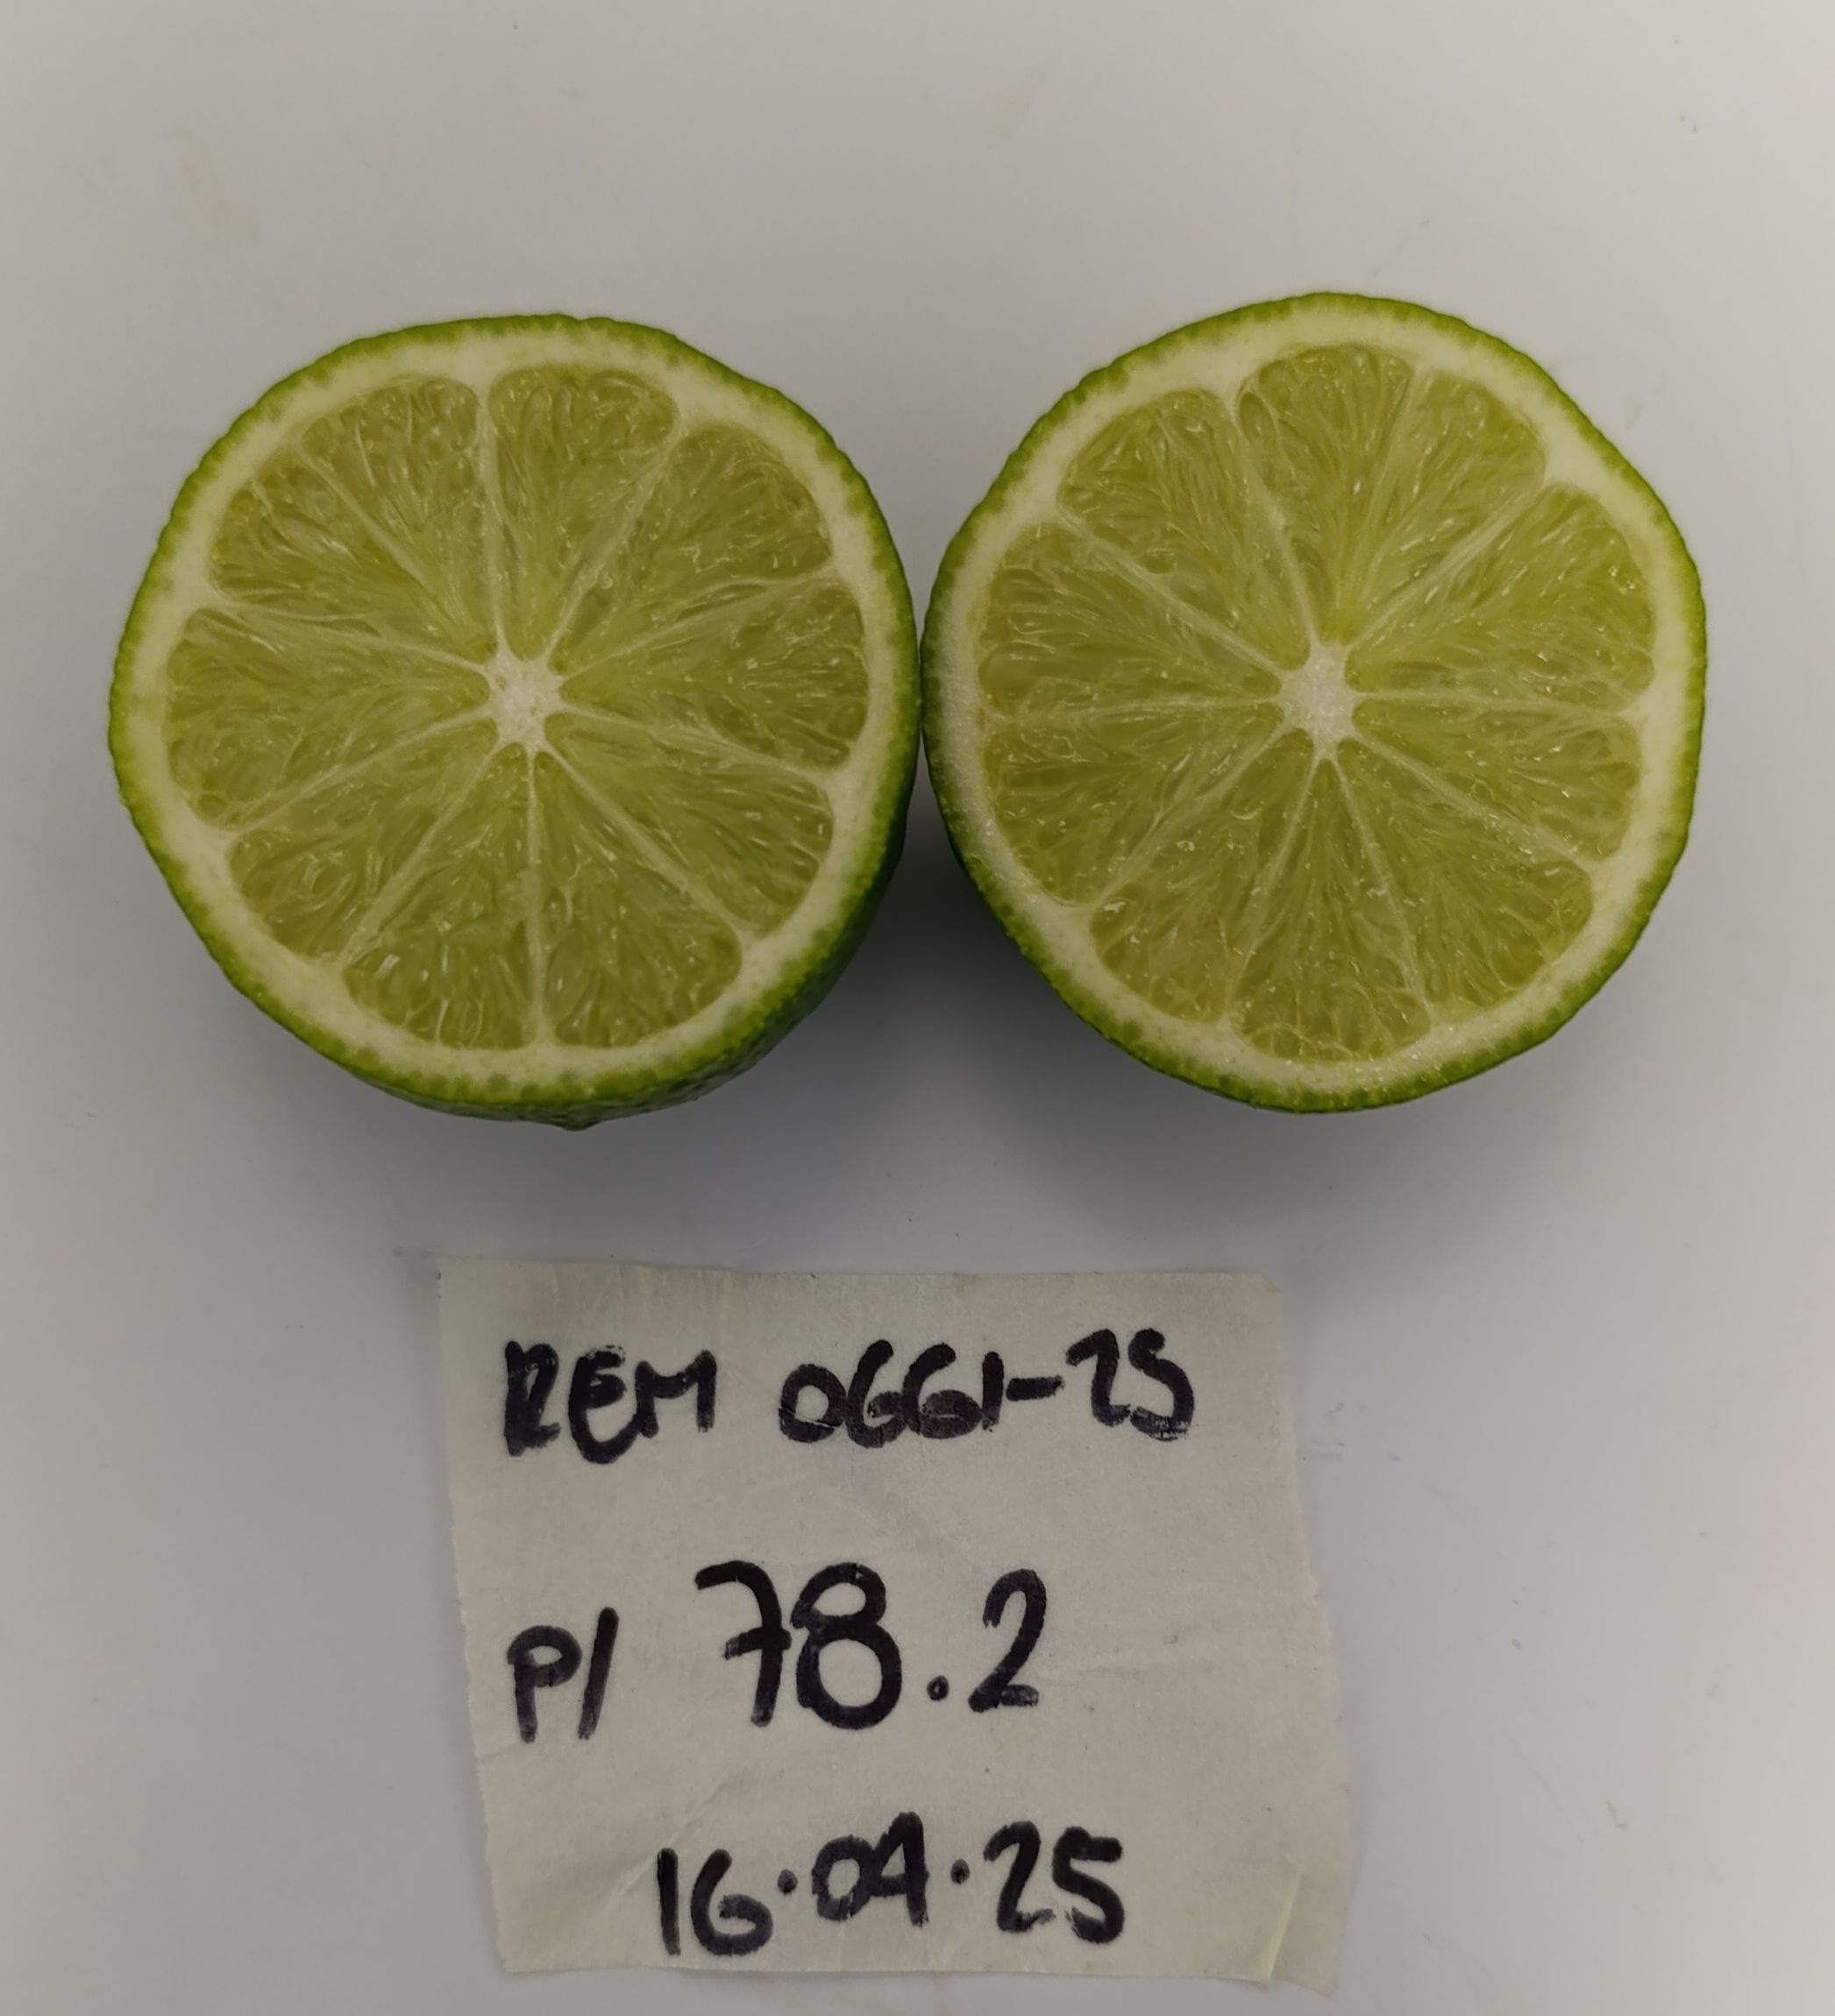 REM 0661-25
P/ 78.2
16.04.25